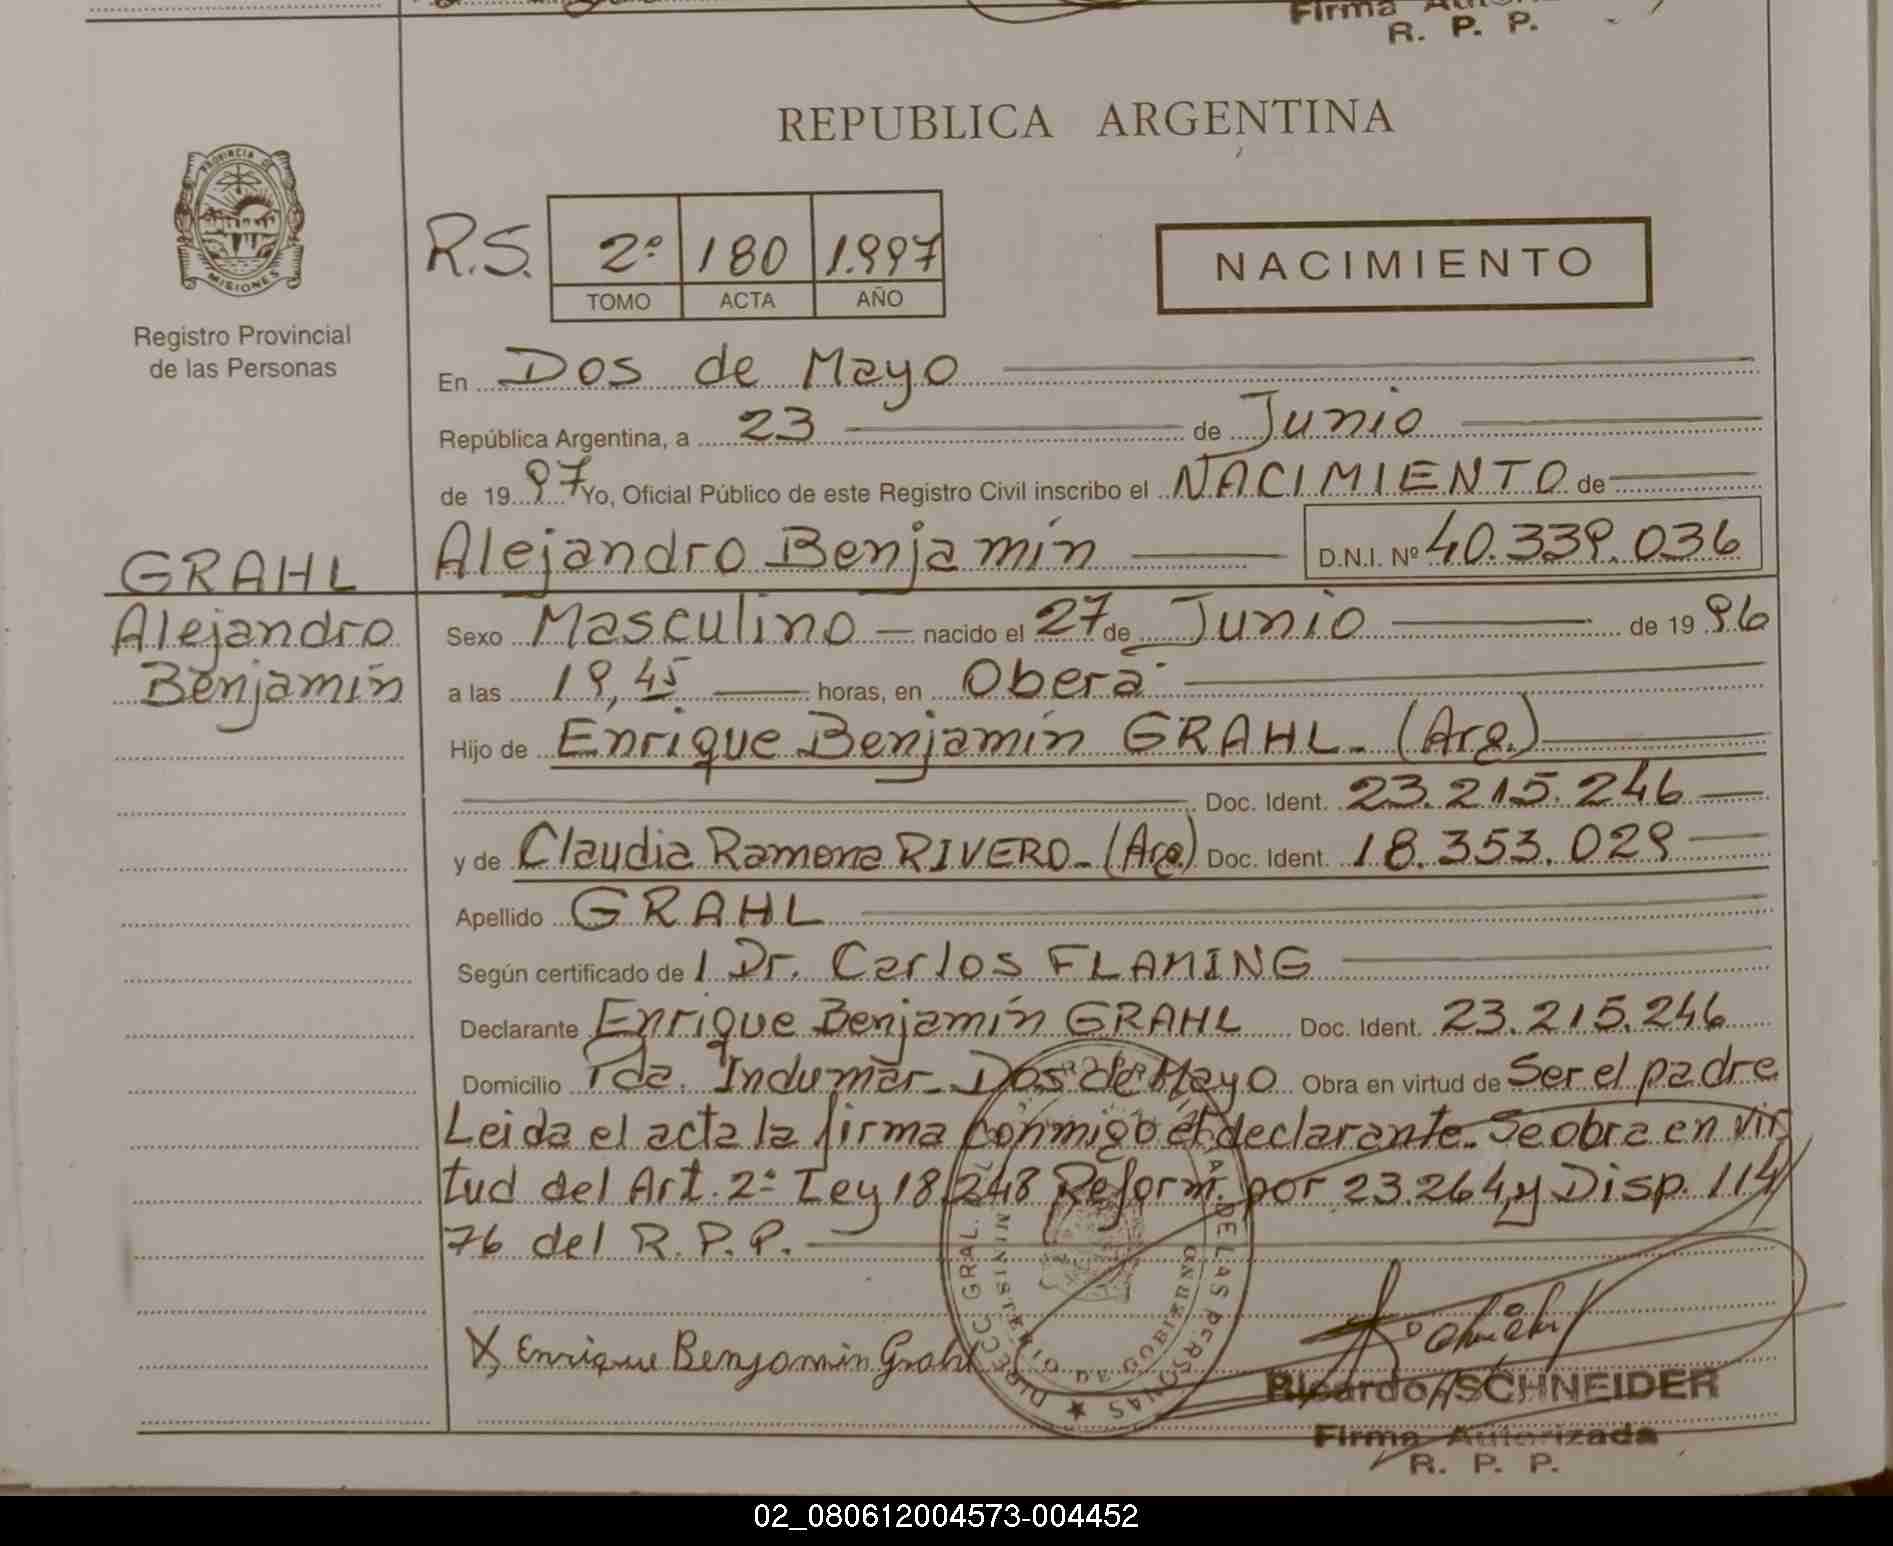 Firma
R. P. P.
REPUBLICA ARGENTINA
PROVINCIA DE
MISIONES
Registro Provincial
de las Personas
R.S. 2º 180 1.997
TOMO ACTA AÑO
NACIMIENTO
En Dos de Mayo
República Argentina, a 23 de Junio
de 1997 Yo, Oficial Público de este Registro Civil inscribo el NACIMIENTO de
Alejandro Benjamín D.N.I. Nº 40.339.036
GRAHL
Alejandro
Benjamín
Sexo Masculino nacido el 27 de Junio de 1996
a las 19,45 horas, en Oberá
Hijo de Enrique Benjamín GRAHL - (Arg.)
Doc. Ident. 23.215.246
y de Claudia Ramona RIVERO - (Arg.) Doc. Ident. 18.353.029
Apellido GRAHL
Según certificado de l Dr. Carlos FLAMING
Declarante Enrique Benjamín GRAHL Doc. Ident. 23.215.246
Domicilio Pda. Indumar - Dos de Mayo Obra en virtud de Ser el padre
Leida el acta la firma conmigo el declarante. Se obra en vir
tud del Art. 2º Ley 18.248 Reform. por 23.264 y Disp. 114/
76 del R.P.P.
X Enrique Benjamin Grahl
DIRECC GRAL. DE LAS PERSONAS
MINISTERIO DE GOBIERNO
Ricardo SCHNEIDER
Firma Autorizada
R. P. P.
02_080612004573-004452